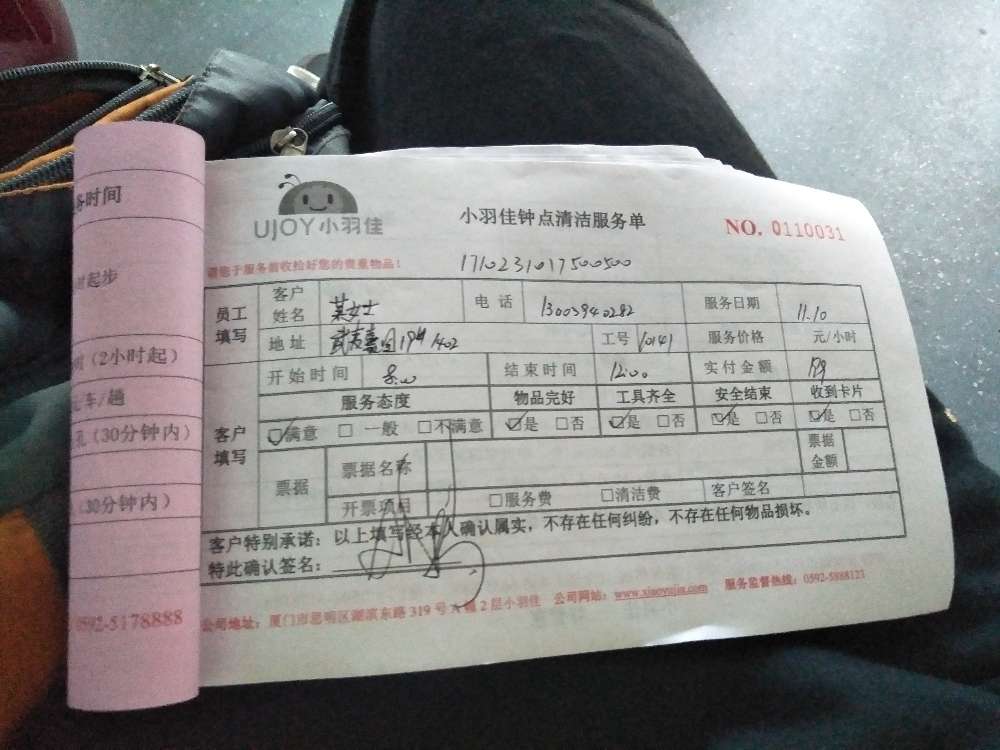 务时间
时起步
时（2小时起）
元/车/趟
孔（30分钟内）
（30分钟内）
0592-5178888
UJOY小羽佳
小羽佳钟点清洁服务单
NO. 0110031
请您于服务前收拾好您的贵重物品！
1710231017500500
员工填写
客户姓名 某女士 电话 13003940282 服务日期 11.10
地址 402 工号 10141 服务价格 元/小时
客户填写
开始时间 8:00 结束时间 12:00 实付金额
服务态度 物品完好 工具齐全 安全结束 收到卡片
☑满意 □一般 □不满意 ☑是 □否 ☑是 □否 ☑是 □否 ☑是 □否
票据 票据名称 票据金额
开票项目 □服务费 □清洁费 客户签名
客户特别承诺：以上填写经本人确认属实，不存在任何纠纷，不存在任何物品损坏。
特此确认签名：
公司地址：厦门市思明区湖滨东路319号 2层小羽佳 公司网站：www.xiaoyujia.com 服务监督热线：0592-5888123